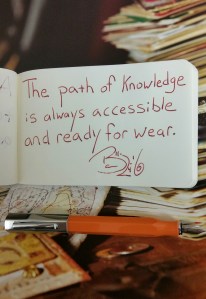 The path of Knowledge
is always accessible
and ready for wear.